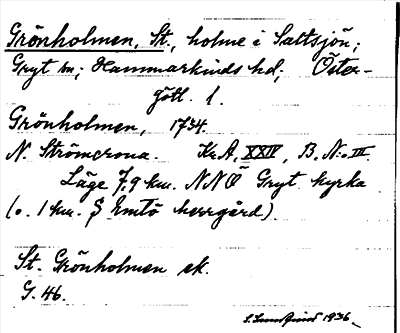 Grönholmen, St., holme i Saltsjön;
Gryt sn; Hammarkinds hd; Öster-
götl. l.
Grönholmen, 1734.
N. Strömcrona. Kr.A. XXIV, B. N:o III.
Läge 7,9 km. NNÖ Gryt kyrka
(o. 1 km. S Emtö herrgård).
St. Grönholmen ek.
G. 46.
S. Lundquist 1936.